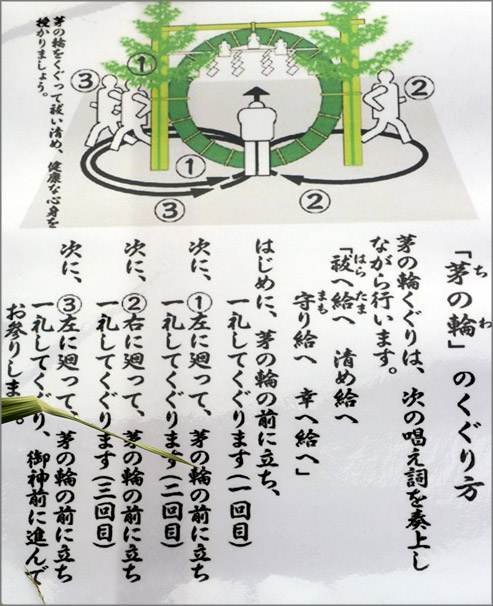 「茅の輪」のくぐり方
ち わ
茅の輪くぐりは、次の唱え詞を奏上し
ながら行います。
「祓へ給へ 清め給へ
はら たま
守り給へ 幸へ給へ」
まも
はじめに、茅の輪の前に立ち、
一礼してくぐります(一回目)
次に、①左に廻って、茅の輪の前に立ち
一礼してくぐります(二回目)
次に、②右に廻って、茅の輪の前に立ち
一礼してくぐります(三回目)
次に、③左に廻って、茅の輪の前に立ち
一礼してくぐり、御神前に進んで
お参りしま。
茅の輪をくぐって祓い清め、健康な心身を
授かりましょう。
③
①
②
①
③
②